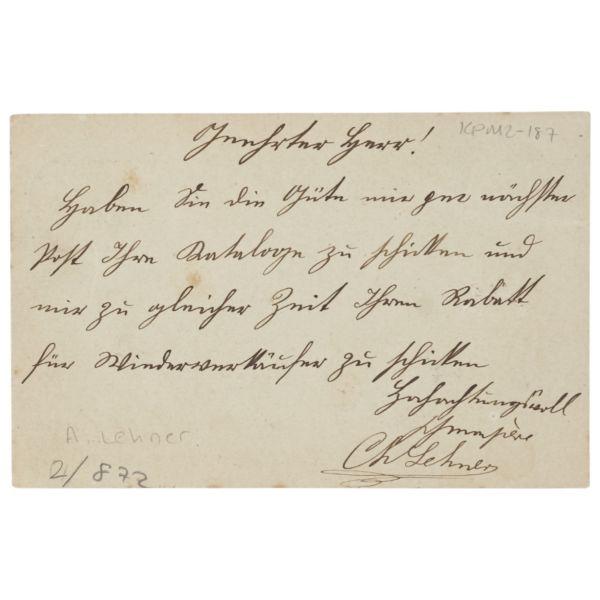 KPM2-187
Geehrter Herr!
Haben Sie die Güte mir per nächster
Post Ihre Kataloge zu schicken und
mir zu gleicher Zeit Ihren Rabatt
für Wiederverkäufer zu schicken
Hochachtungsvoll
Ch Lehner
A. Lehner.
2/872